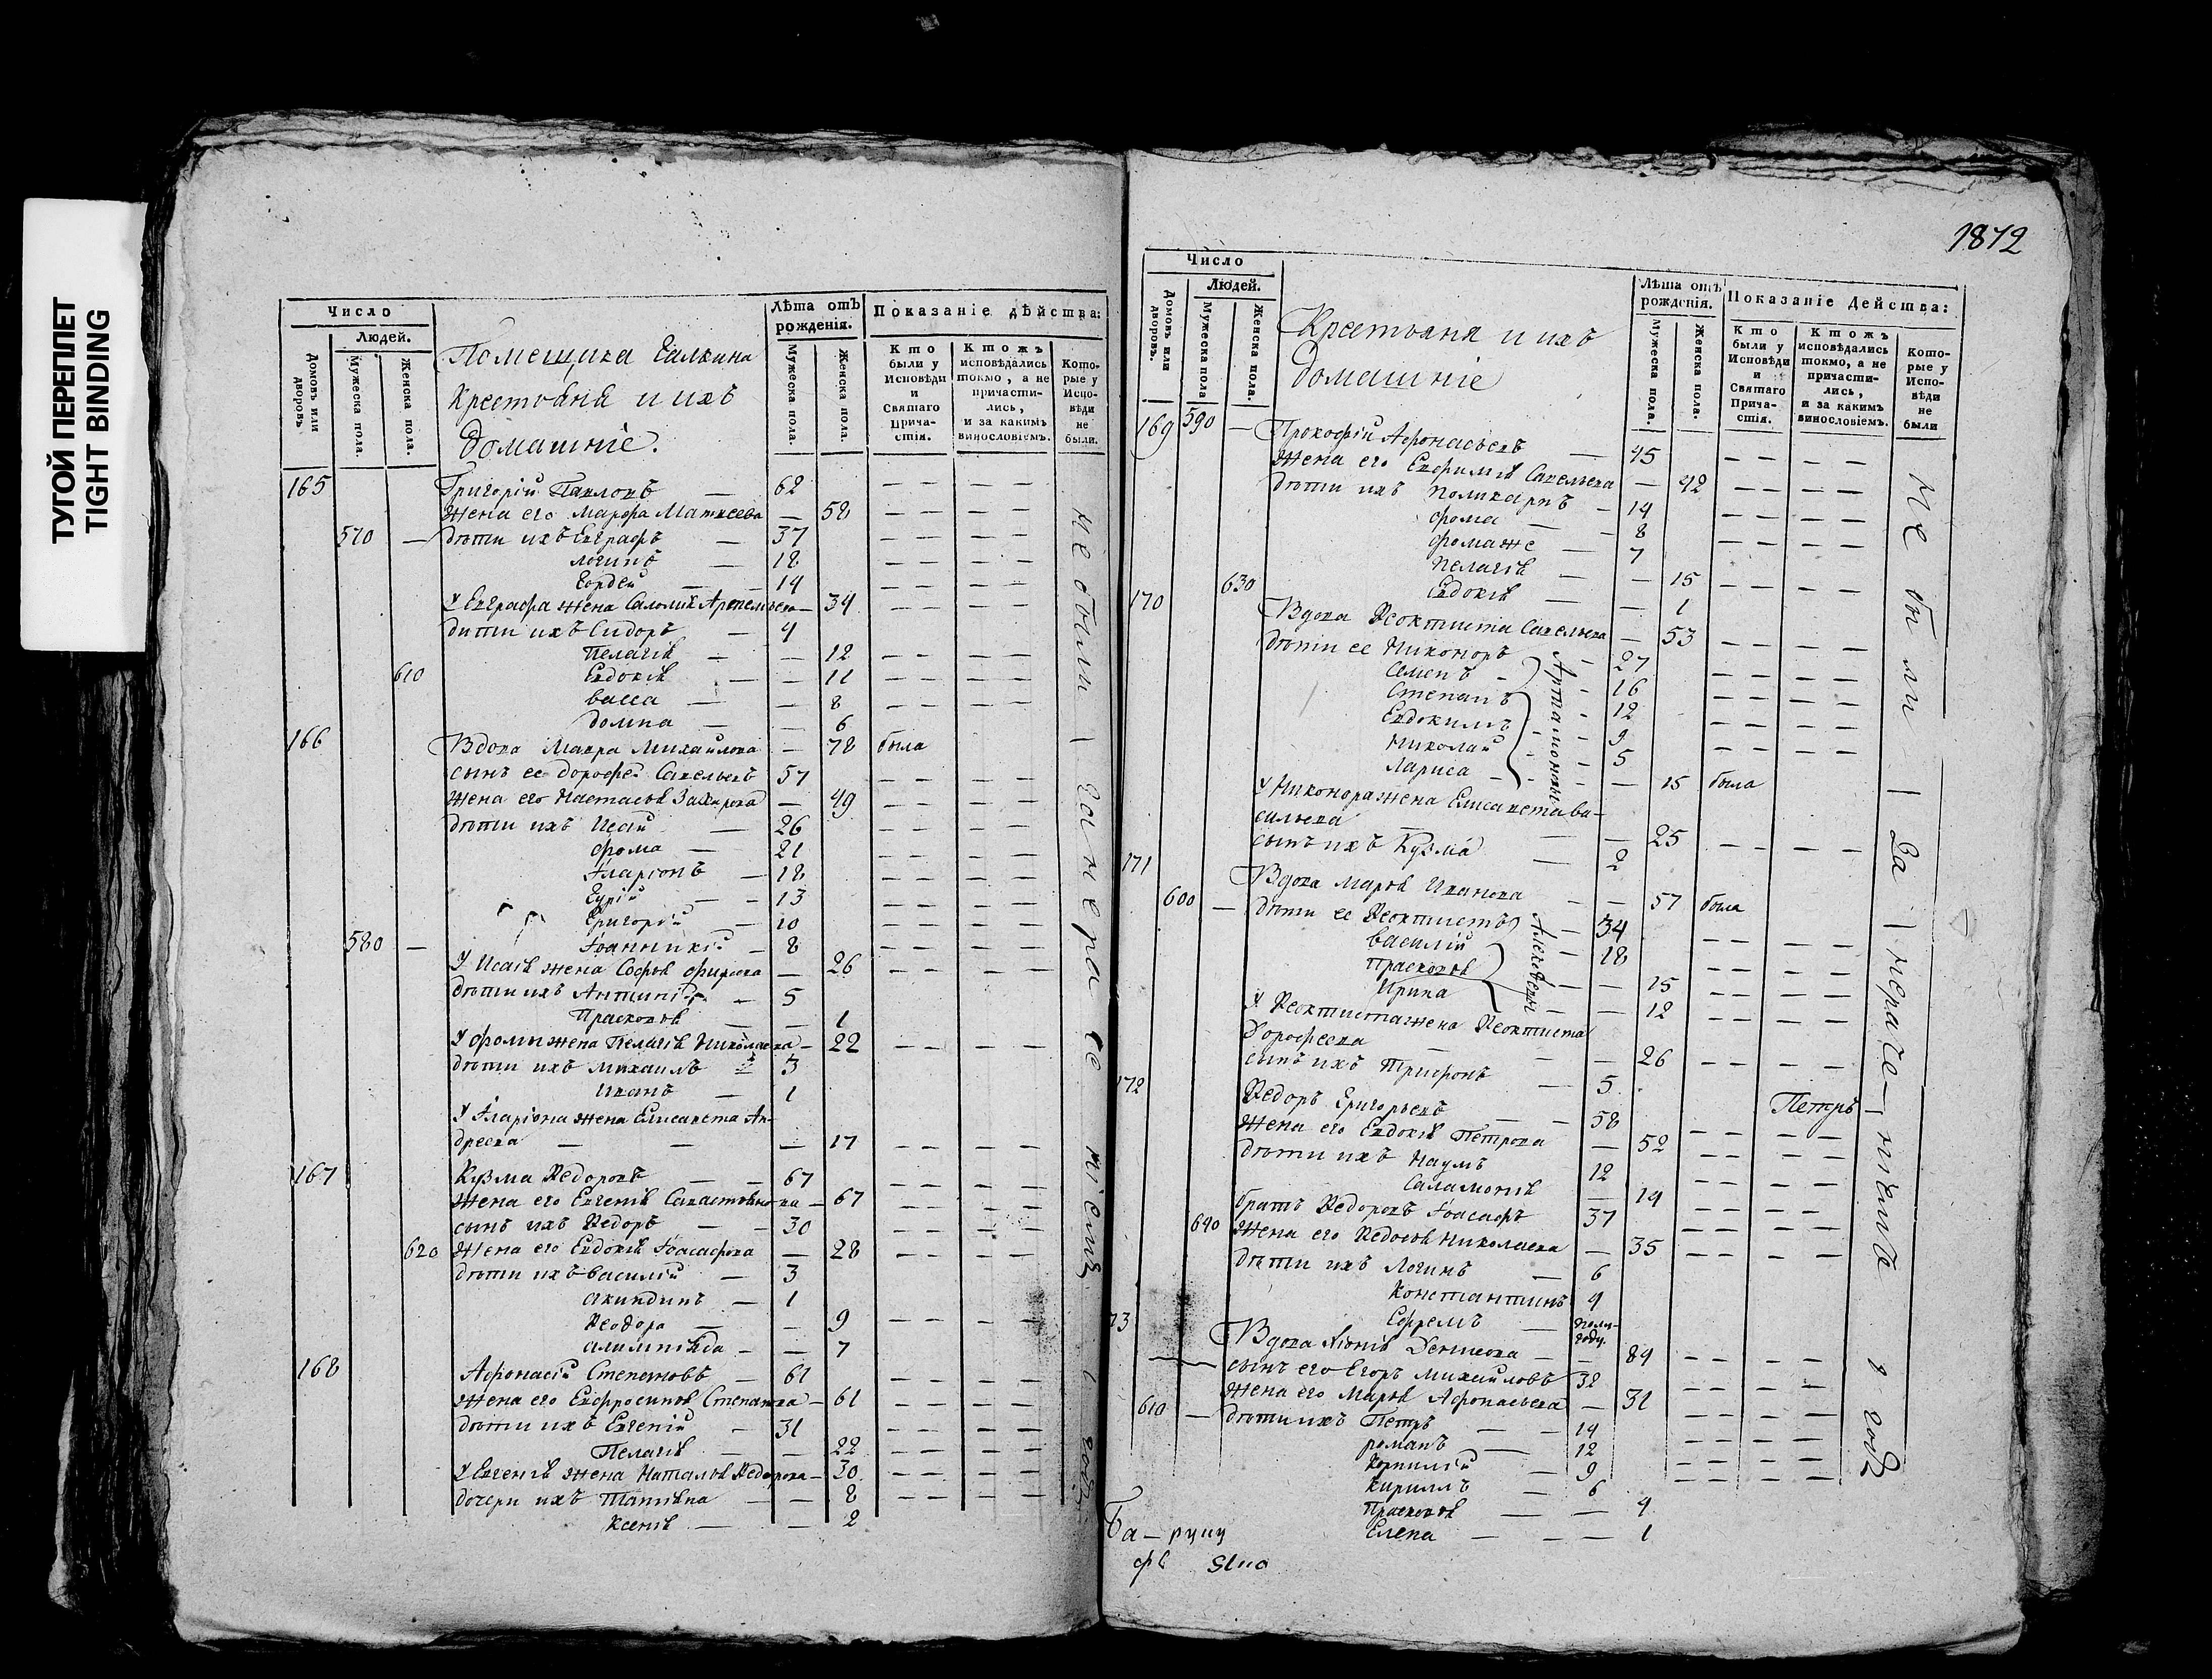 ТУГОЙ ПЕРЕПЛЕТ
TIGHT BINDING
Число
Людей.
Домовъ или дворовъ.
Мужеска пола.
Женска пола.
Помещика Галкина
Крестьяня и ихъ
домашніе.
Лѣта отъ рожденія.
Мужеска пола.
Женска пола.
Показаніе дѣйства:
Кто были у Исповѣди и Святаго Прича-стія.
Ктожъ исповѣдались токмо, а не причасти-лись, и за какимъ винословіемъ.
Кото-рые у Испо-вѣди не были.
165 Григорій Павловъ — 62 — — — —
жена его Марфа Матвеева — 58 — — — —
570 — дѣти ихъ Евграфъ — 37 — — — —
логинъ — 18 — — — —
Гордей — 14 — — — —
У Евграфа жена Саломія — 34 — — — —
дѣти ихъ Сидоръ — 4
Пелагія — — 12 — — — —
610 Евдокія — — 11 — — — —
васса — — 8 — — — —
домна — — 6 — — — —
166 Вдова Мавра Михайлова — 78 была
сынъ ее дорофей Савельевъ 57 — — — —
жена его Настасья Захарова — 49 — — — —
дѣти ихъ Исай — 26 — — — —
фома — 21 — — — —
Іларіонъ — 18 — — — —
Гурій — — 13 — — — —
Григорій — 10 — — — —
580 — Іоанникій — 8 — — — —
У Исаія жена Софья — 26 — — — —
дѣти ихъ — 5
Прасковья — — 1
У фомы жена Пелагія Николаева — 22 — — — —
дѣти ихъ михаилъ — 3
Иванъ — 1
У Іларіона жена Елисавета Ан-
дреева — — — 17 — — — —
167 Кузма Ѳедоровъ — — 67 — — — —
жена его Евгенія — 67 — — — —
сынъ ихъ Ѳедоръ — — 30 — — — —
620 жена его Евдокія Іоасафова — 28 — — — —
дѣти ихъ Василій — 3
акиндинъ — 1
Ѳеодора — — 9 — — — —
— — 7
168 Афонасій Степановъ — 61 — — — —
жена его Евфросинья Степанова — 61 — — — —
дѣти ихъ Евгеній — 31 — — — —
Пелагія — — 22 — — — —
У Евгенія жена Наталья Ѳедорова — 30 — — — —
дочери ихъ Татіяна — — 8 — — — —
Ксенія — — 2
не были | за нера
1812
Число
Людей.
Домовъ или дворовъ.
Мужеска пола
Женска пола.
Крестьяня и ихъ
домашніе
Лѣта отъ рожденія.
Мужеска пола.
Женска пола.
Показаніе действа:
Кто были у Исповѣди и Святаго Прича-стія.
Ктожъ исповѣдались токмо, а не причасти-лись, и за какимъ винословіемъ.
Кото-рые у Испо-вѣди не были
169 590 — Прокофій Афонасьевъ — 45 — — — —
жена его Евфимія Савельева — 42 — — — —
дѣти ихъ Поликарпъ — 14 — — — —
фома — — 8 — — — —
фома же — 7
Пелагія — — 15 — — — —
630 Евдокія — — 1
170 Вдова Ѳеоктиста Савельева — 53 — — — —
дѣти ее Никоноръ — 27 — — — —
Семенъ — 16 — — — —
Степанъ — 12 — — — —
Евдокимъ — 9 — — — —
Николай — 5
Лариса — — 15 была
Артамоновы
У Никонора жена Елисавета ва-
сильева — — 25 — — — —
сынъ ихъ Кузма — 2
171 Вдова Марья Иванова — — 57 была
600 — дѣти ее Ѳеоктистъ — 34 — — — —
василій — 18 — — — —
Прасковья — — 15 — — — —
Ирина — — 12 — — — —
У Ѳеоктиста жена Ѳеоктиста
Дорофеева — — 26 — — — —
сынъ ихъ Трифонъ — 5
172 Ѳедоръ Григорьевъ — — 58 — — — —
Петръ
жена его Евдокія Петрова — 52 — — — —
дѣти ихъ Наумъ 12 — — — —
Саламонія — 14 — — — —
братъ Ѳедоровъ Іоасафъ 37 — — — —
640 жена его Ѳедосья Николаева — 35 — — — —
дѣти ихъ Логинъ — 6
Константинъ 4
Ефремъ — полу-году.
73 Вдова — — 84 — — — —
сынъ его Егоръ Михайловъ 32 — — — —
жена его Марья Афонасьева — 31 — — — —
610 — дѣти ихъ Петръ — — 14 — — — —
романъ — 12 — — — —
Корнилій — 9 — — — —
Кириллъ — 6
Прасковья — — 4
Елена — — 1
не были | за | нераче- | ніемъ